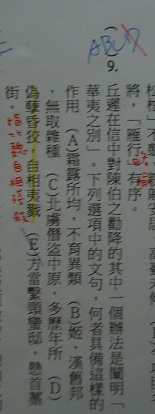 ABCD
將，「雁行」有序。
( )9. 丘遲在信中對陳伯之勸降的其中一個辦法是闡明「
華夷之別」。下列選項中的文句，何者具備這樣的
作用 (A)霜露所均，不育異類 (B)姬、漢舊邦
，無取雜種 (C)北虜僭盜中原，多歷年所 (D)
偽孽昏狡，自相夷戮 (E)方當繫頸蠻邸，懸首藁
街。
指北魏自相殘殺